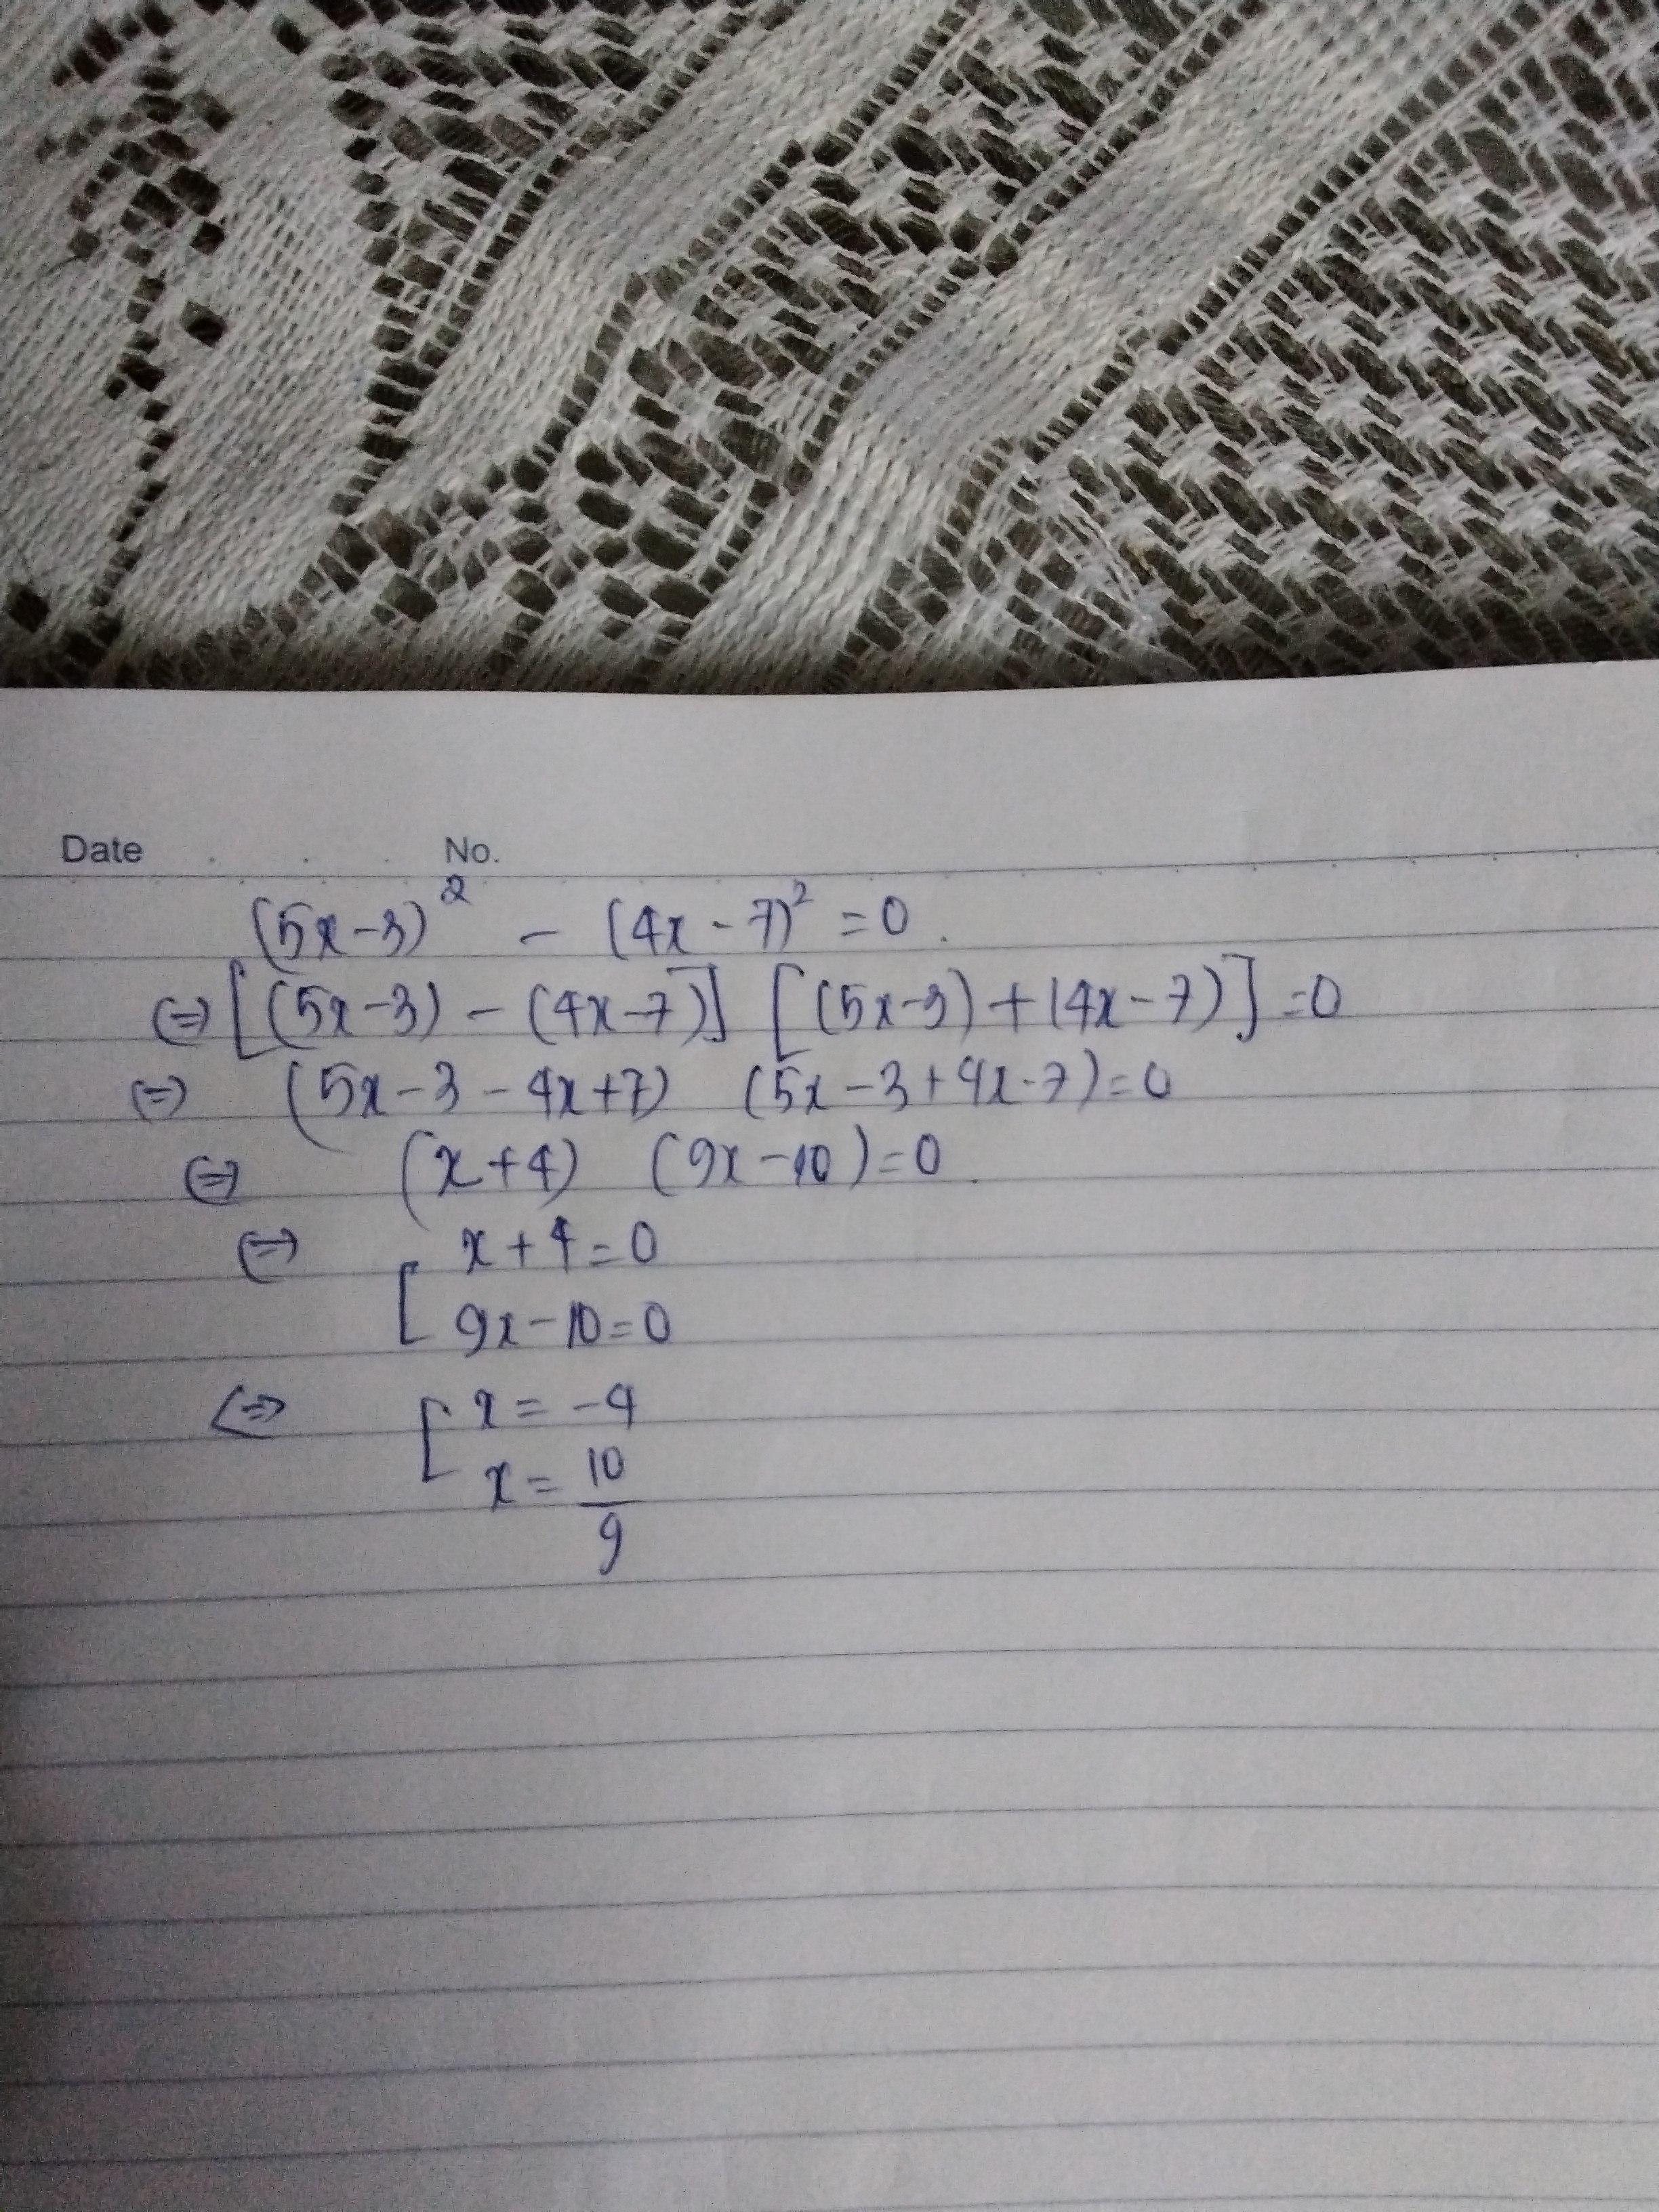 Date No.
(5x-3)² - (4x-7)² = 0.
⇔ [(5x-3) - (4x-7)] [(5x-3) + (4x-7)] = 0
⇔ (5x-3-4x+7) (5x-3+4x-7) = 0
⇔ (x+4) (9x-10) = 0.
⇔ [ x+4=0
9x-10=0
⇔ [ x = -4
x = 10/9